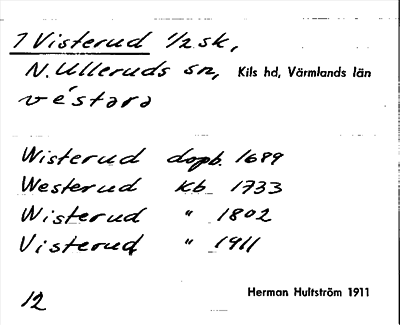 7 Visterud 1/2 sk,
N. Ulleruds sn, Kils hd, Värmlands län
véstərə
Wisterud dopb. 1699
Westerud Kb 1733
Wisterud " 1802
Visterud " 1911
12 Herman Hultström 1911